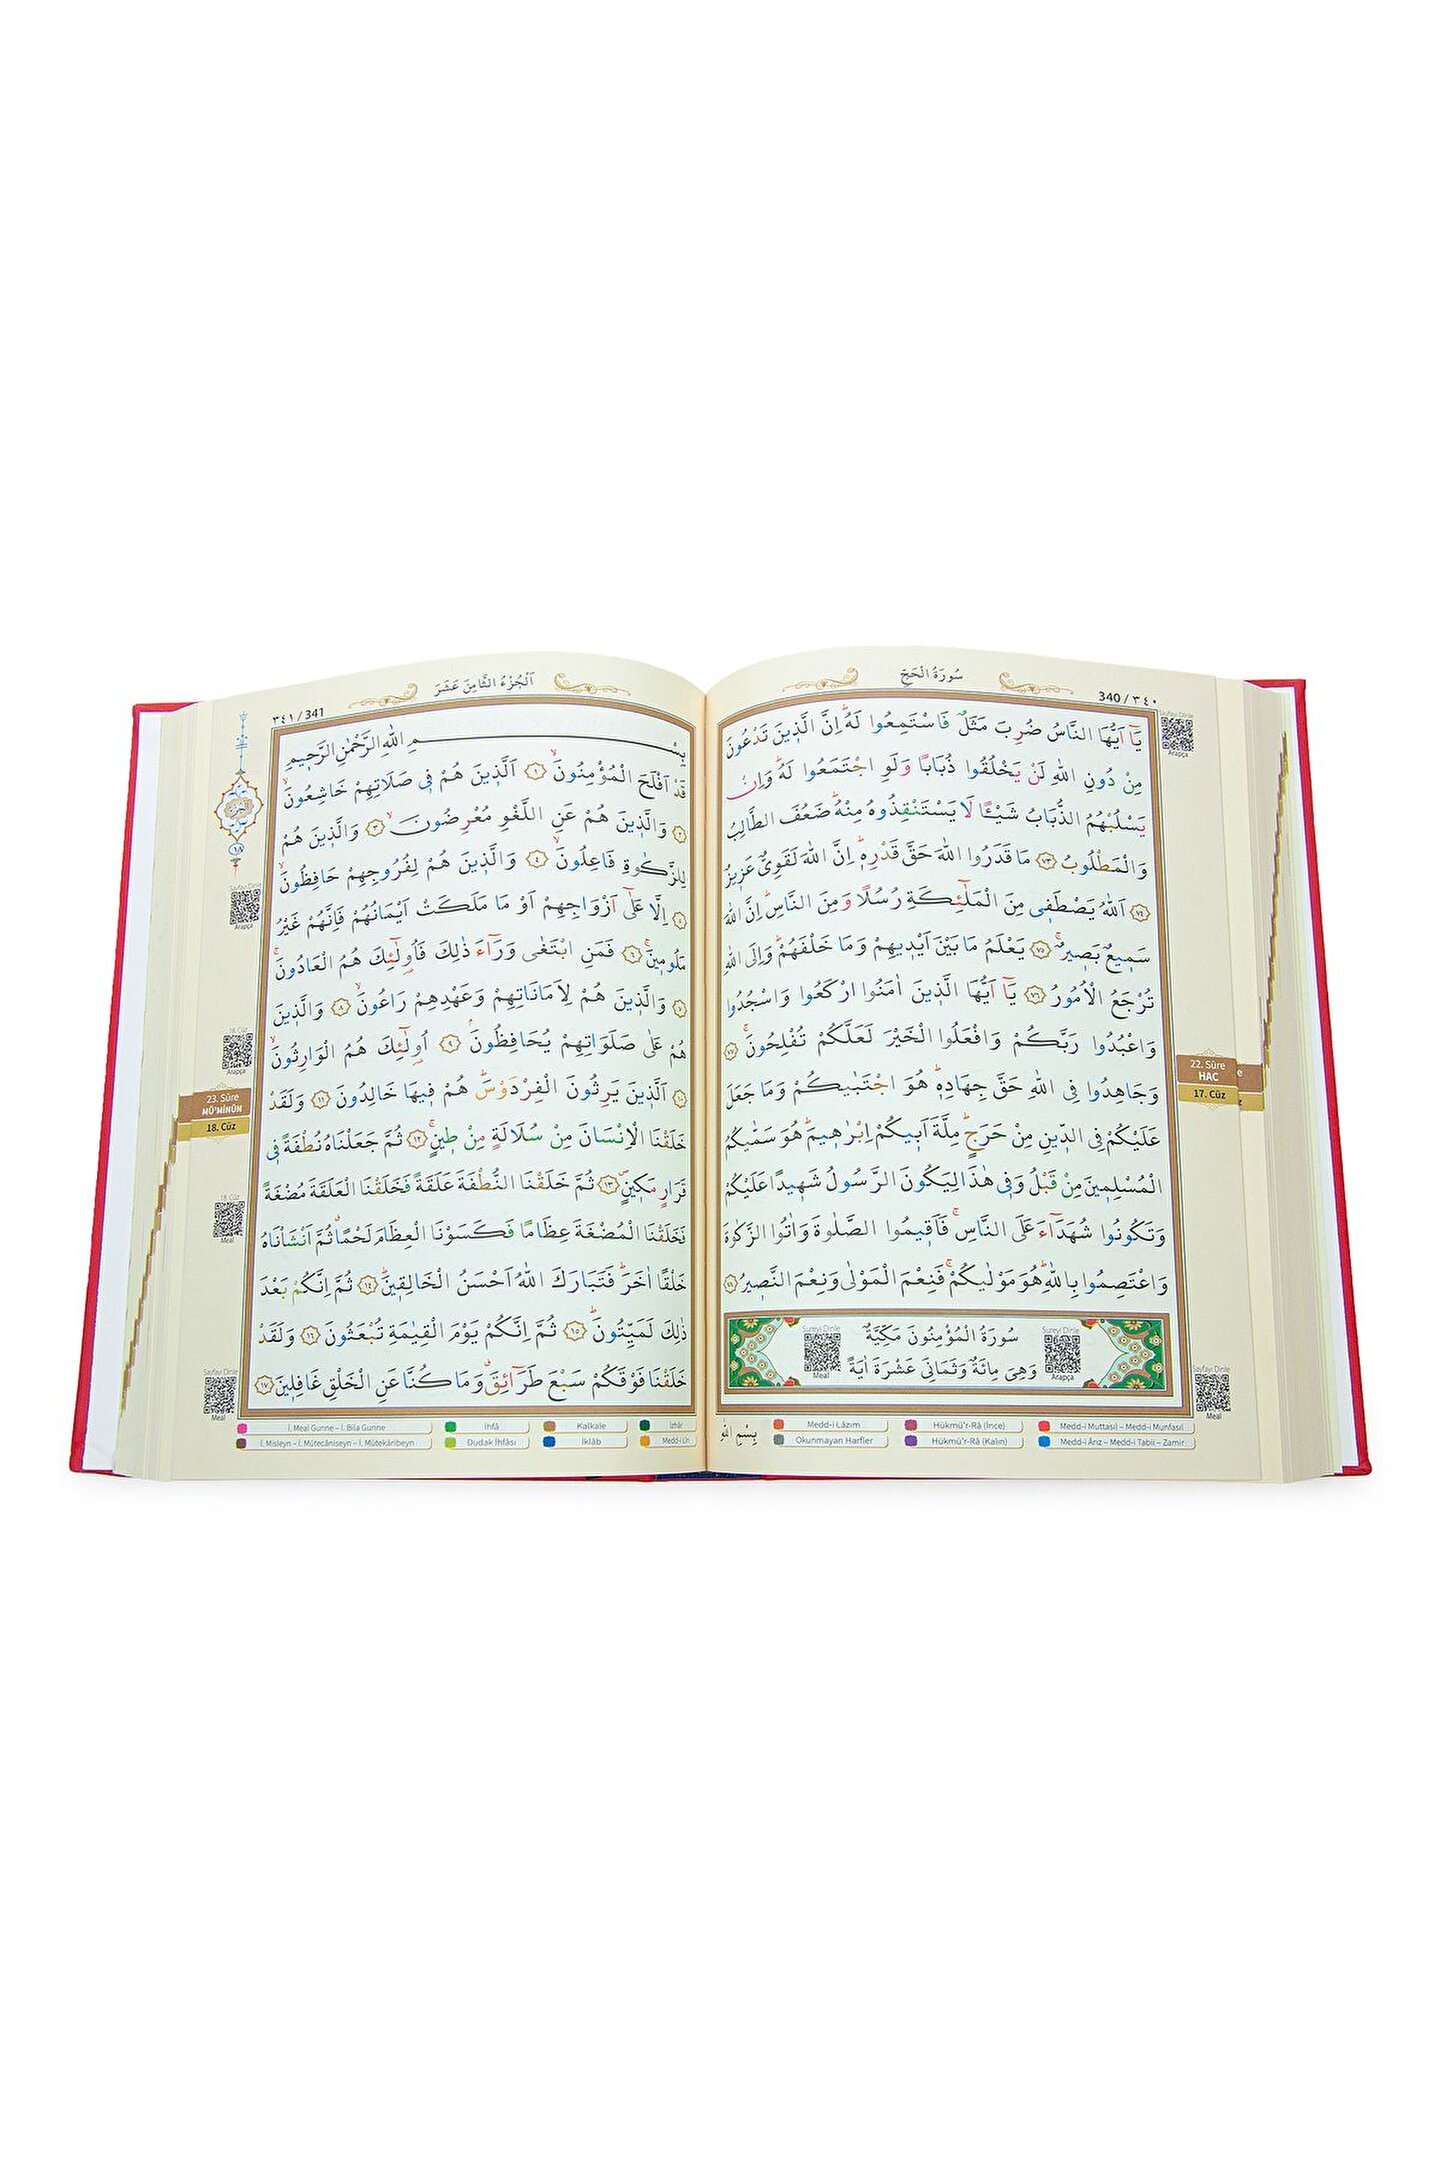 340 / ٣٤٠
سُورَةُ الْحَجِّ
يَٓا اَيُّهَا النَّاسُ ضُرِبَ مَثَلٌ فَاسْتَمِعُوا لَهُۜ اِنَّ الَّذ۪ينَ تَدْعُونَ
مِنْ دُونِ اللّٰهِ لَنْ يَخْلُقُوا ذُبَابًا وَلَوِ اجْتَمَعُوا لَهُۜ وَاِنْ
يَسْلُبْهُمُ الذُّبَابُ شَيْـًٔا لَا يَسْتَنْقِذُوهُ مِنْهُۜ ضَعُفَ الطَّالِبُ
وَالْمَطْلُوبُ ﴿٧٣﴾ مَا قَدَرُوا اللّٰهَ حَقَّ قَدْرِه۪ۜ اِنَّ اللّٰهَ لَقَوِيٌّ عَز۪يزٌ
﴿٧٤﴾ اَللّٰهُ يَصْطَف۪ي مِنَ الْمَلٰٓئِكَةِ رُسُلًا وَمِنَ النَّاسِۜ اِنَّ اللّٰهَ
سَم۪يعٌ بَص۪يرٌۚ ﴿٧٥﴾ يَعْلَمُ مَا بَيْنَ اَيْد۪يهِمْ وَمَا خَلْفَهُمْۜ وَاِلَى اللّٰهِ
تُرْجَعُ الْاُمُورُ ﴿٧٦﴾ يَٓا اَيُّهَا الَّذ۪ينَ اٰمَنُوا ارْكَعُوا وَاسْجُدُوا
وَاعْبُدُوا رَبَّكُمْ وَافْعَلُوا الْخَيْرَ لَعَلَّكُمْ تُفْلِحُونَۚ ﴿٧٧﴾
وَجَاهِدُوا فِي اللّٰهِ حَقَّ جِهَادِه۪ۜ هُوَ اجْتَبٰيكُمْ وَمَا جَعَلَ
عَلَيْكُمْ فِي الدّ۪ينِ مِنْ حَرَجٍۜ مِلَّةَ اَب۪يكُمْ اِبْرٰه۪يمَۜ هُوَ سَمّٰيكُمُ
الْمُسْلِم۪ينَ مِنْ قَبْلُ وَف۪ي هٰذَا لِيَكُونَ الرَّسُولُ شَه۪يدًا عَلَيْكُمْ
وَتَكُونُوا شُهَدَٓاءَ عَلَى النَّاسِۚ فَاَق۪يمُوا الصَّلٰوةَ وَاٰتُوا الزَّكٰوةَ
وَاعْتَصِمُوا بِاللّٰهِۜ هُوَ مَوْلٰيكُمْۚ فَنِعْمَ الْمَوْلٰى وَنِعْمَ النَّص۪يرُ ﴿٧٨﴾
سُورَةُ الْمُؤْمِنُونَ مَكِّيَّةٌ
وَهِيَ مِائَةٌ وَثَمَانِيَ عَشْرَةَ اٰيَةً
Sureyi Dinle
Meal
Sureyi Dinle
Arapça
Sayfayı Dinle
Arapça
22. Sûre
HAC
17. Cüz
Sayfayı Dinle
Meal
بِسْمِ اللّٰهِ
Medd-i Lâzım
Hükmü'r-Râ (İnce)
Medd-i Muttasıl – Medd-i Munfasıl
Okunmayan Harfler
Hükmü'r-Râ (Kalın)
Medd-i Ârız – Medd-i Tabii – Zamir
اَلْجُزْءُ الثَّامِنَ عَشَرَ
٣٤١ / 341
بِسْمِ اللّٰهِ الرَّحْمٰنِ الرَّح۪يمِ
قَدْ اَفْلَحَ الْمُؤْمِنُونَۙ ﴿١﴾ اَلَّذ۪ينَ هُمْ ف۪ي صَلَاتِهِمْ خَاشِعُونَۙ
﴿٢﴾ وَالَّذ۪ينَ هُمْ عَنِ اللَّغْوِ مُعْرِضُونَۙ ﴿٣﴾ وَالَّذ۪ينَ هُمْ
لِلزَّكٰوةِ فَاعِلُونَۙ ﴿٤﴾ وَالَّذ۪ينَ هُمْ لِفُرُوجِهِمْ حَافِظُونَۙ
﴿٥﴾ اِلَّا عَلٰٓى اَزْوَاجِهِمْ اَوْ مَا مَلَكَتْ اَيْمَانُهُمْ فَاِنَّهُمْ غَيْرُ
مَلُوم۪ينَۚ ﴿٦﴾ فَمَنِ ابْتَغٰى وَرَٓاءَ ذٰلِكَ فَاُو۬لٰٓئِكَ هُمُ الْعَادُونَۚ
﴿٧﴾ وَالَّذ۪ينَ هُمْ لِاَمَانَاتِهِمْ وَعَهْدِهِمْ رَاعُونَۙ ﴿٨﴾ وَالَّذ۪ينَ
هُمْ عَلٰى صَلَوَاتِهِمْ يُحَافِظُونَۢ ﴿٩﴾ اُو۬لٰٓئِكَ هُمُ الْوَارِثُونَۙ
﴿١٠﴾ اَلَّذ۪ينَ يَرِثُونَ الْفِرْدَوْسَۜ هُمْ ف۪يهَا خَالِدُونَ ﴿١١﴾ وَلَقَدْ
خَلَقْنَا الْاِنْسَانَ مِنْ سُلَالَةٍ مِنْ ط۪ينٍۚ ﴿١٢﴾ ثُمَّ جَعَلْنَاهُ نُطْفَةً ف۪ي
قَرَارٍ مَك۪ينٍۖ ﴿١٣﴾ ثُمَّ خَلَقْنَا النُّطْفَةَ عَلَقَةً فَخَلَقْنَا الْعَلَقَةَ مُضْغَةً
فَخَلَقْنَا الْمُضْغَةَ عِظَامًا فَكَسَوْنَا الْعِظَامَ لَحْمًاۗ ثُمَّ اَنْشَأْنَاهُ
خَلْقًا اٰخَرَۜ فَتَبَارَكَ اللّٰهُ اَحْسَنُ الْخَالِق۪ينَۜ ﴿١٤﴾ ثُمَّ اِنَّكُمْ بَعْدَ
ذٰلِكَ لَمَيِّتُونَۜ ﴿١٥﴾ ثُمَّ اِنَّكُمْ يَوْمَ الْقِيٰمَةِ تُبْعَثُونَ ﴿١٦﴾ وَلَقَدْ
خَلَقْنَا فَوْقَكُمْ سَبْعَ طَرَٓائِقَۗ وَمَا كُنَّا عَنِ الْخَلْقِ غَافِل۪ينَ ﴿١٧﴾
١٨
Sayfayı Dinle
Arapça
18. Cüz
Arapça
23. Sûre
MÜ'MİNÛN
18. Cüz
18. Cüz
Meal
Sayfayı Dinle
Meal
İ. Meal Gunne – İ. Bila Gunne
İhfâ
Kalkale
İzhâr
İ. Misleyn – İ. Mütecâniseyn – İ. Mütekâribeyn
Dudak İhfâsı
İklâb
Medd-i Lîn